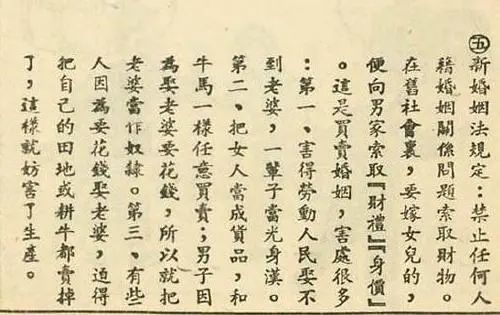 ㊄新婚姻法規定：禁止任何人
藉婚姻關係問題索取財物。
在舊社會裏，要嫁女兒的，
便向男家索取『財禮』『身價』
。這是買賣婚姻，害處很多
：第一、害得勞動人民娶不
到老婆，一輩子當光身漢。
第二、把女人當成貨品，和
牛馬一樣任意買賣；男子因
為娶老婆要花錢，所以就把
老婆當作奴隸。第三、有些
人因為要花錢娶老婆，迫得
把自己的田地或耕牛都賣掉
了，這樣就妨害了生產。